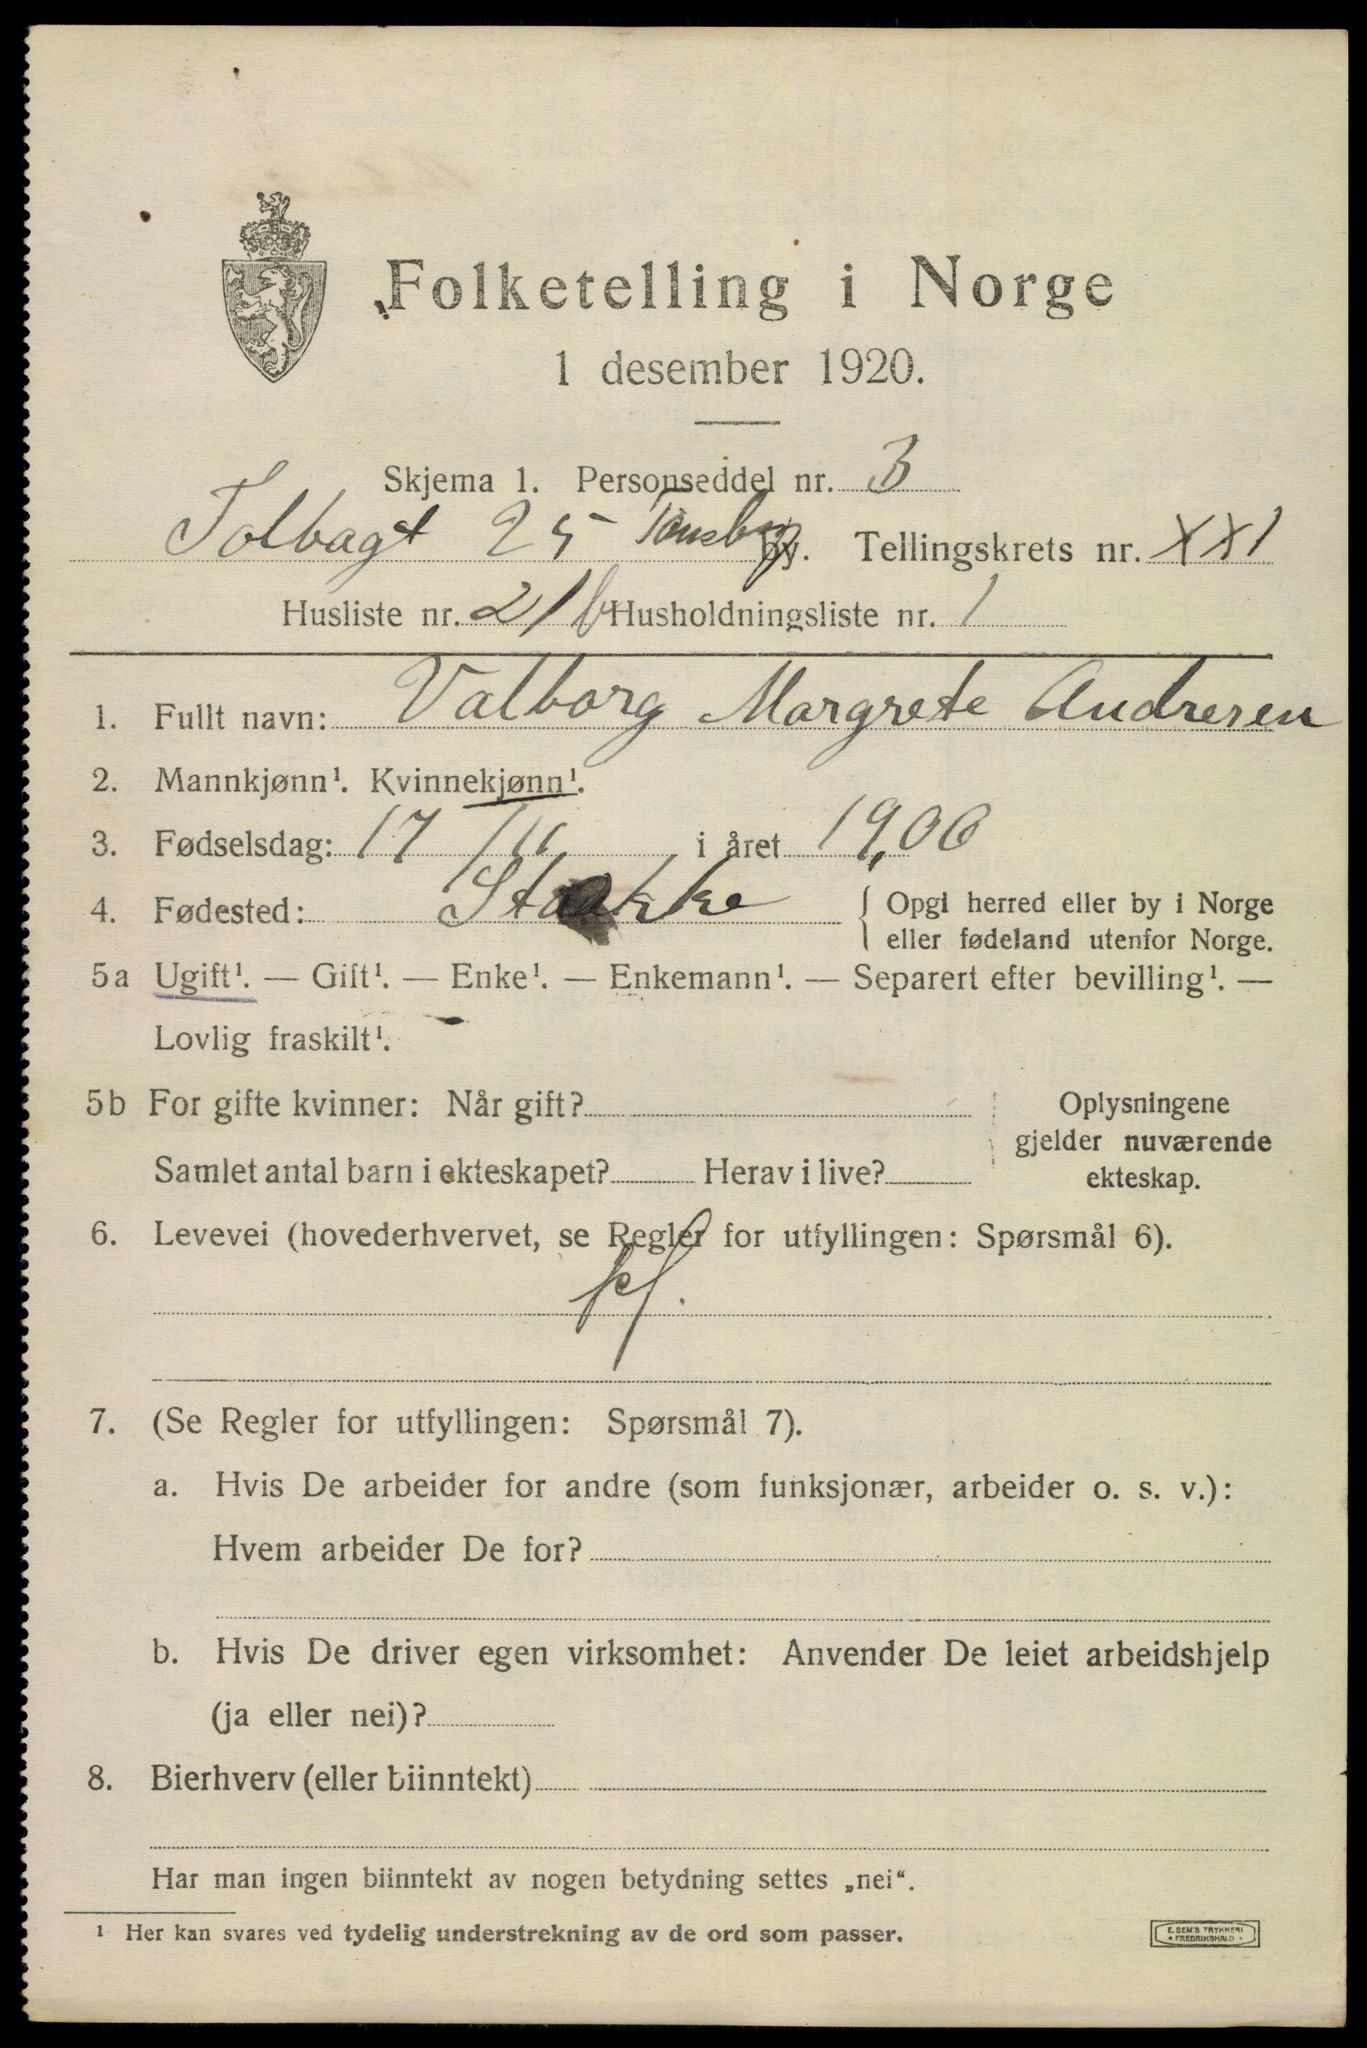 Folketelling i Norge
1 desember 1920.
Skjema 1. Personseddel nr. 3
Tolbagt 25 Tønsberg by. Tellingskrets nr. XXI
Husliste nr. 21 b Husholdningsliste nr. 1
1. Fullt navn: Valborg Margrete Andresen
2. Mannkjønn¹. Kvinnekjønn¹.
3. Fødselsdag: 17/11 i året 1906
4. Fødested: Stokke { Opgi herred eller by i Norge
eller fødeland utenfor Norge.
5a Ugift¹. — Gift¹. — Enke¹. — Enkemann¹. — Separert efter bevilling¹. —
Lovlig fraskilt¹.
5b For gifte kvinner: Når gift? Oplysningene
gjelder nuværende
Samlet antal barn i ekteskapet? Herav i live? ekteskap.
6. Levevei (hovederhvervet, se Regler for utfyllingen: Spørsmål 6).
7. (Se Regler for utfyllingen: Spørsmål 7).
a. Hvis De arbeider for andre (som funksjonær, arbeider o. s. v.):
Hvem arbeider De for?
b. Hvis De driver egen virksomhet: Anvender De leiet arbeidshjelp
(ja eller nei)?
8. Bierhverv (eller biinntekt)
Har man ingen biinntekt av nogen betydning settes „nei“.
¹ Her kan svares ved tydelig understrekning av de ord som passer.
E. SEM'S TRYKKERI
• FREDRIKSHALD •